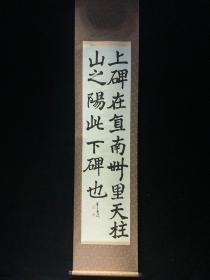 上碑在直南卌里天柱
山之陽此下碑也